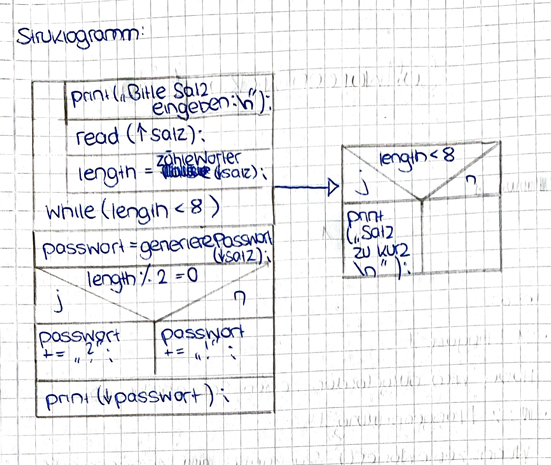 Struktogramm:
print(„Bitte Satz
eingeben:\n");
read (↑satz);
zähleWörter
length = (↓satz);
while (length < 8)
passwort = generierePasswort
(↓satz);
length % 2 = 0
j
n
passwort
+= „2";
passwort
+= „!";
print (↓passwort);
length < 8
j
n
print
(„Satz
zu kurz
\n");